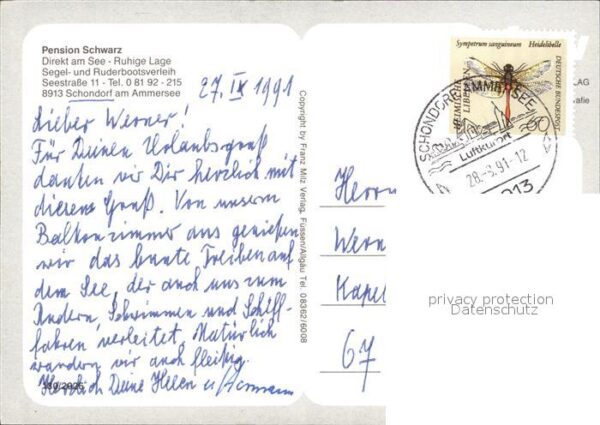 Pension Schwarz
Direkt am See - Ruhige Lage
Segel- und Ruderbootsverleih
Seestraße 11 - Tel. 0 81 92 - 215
8913 Schondorf am Ammersee
27. IX 1991
Lieber Werner!
Für Deinen Urlaubsgruß
danken wir Dir herzlich mit
diesem Gruß. Von unserm
Balkonzimmer aus genießen
wir das bunte Treiben auf
dem See, der auch uns zum
Rudern, Schwimmen und Schiff-
fahren verleitet. Natürlich
wandern wir auch fleißig.
Herzlich Deine Helen u. Hermann
Copyright by Franz Milz Verlag, Füssen/Allgäu Tel. 08362/6008
Sympetrum sanguineum Heidelibelle
HEIMISCHE LIBELLEN
DEUTSCHE BUNDESPOST
60
SCHONDORF AMMERSEE
Luftkurort
28.-9.91-12
8913
LAG
afie
Herrn
Wern
Kapel
67
privacy protection
Datenschutz